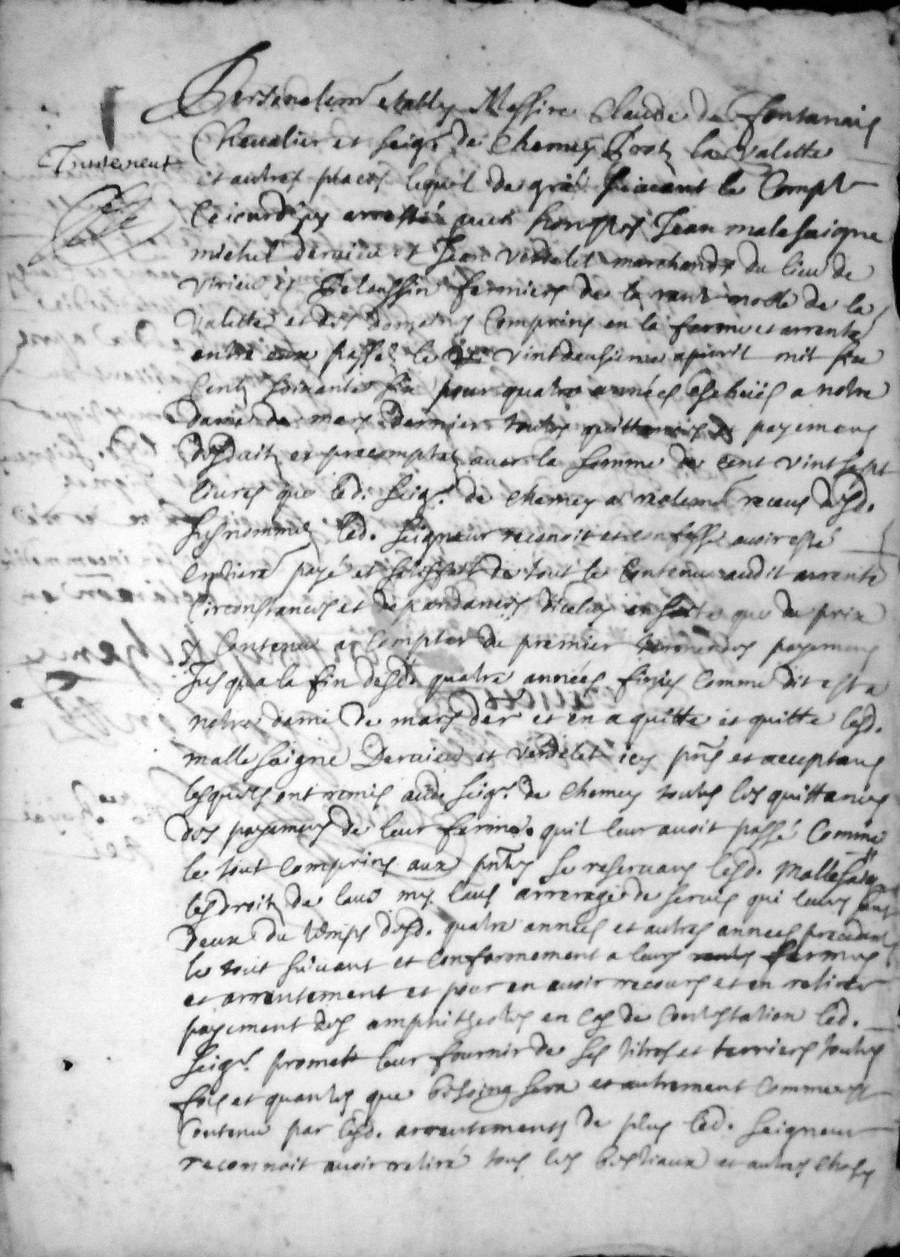 Personelemt estably Messire Claude de Fontanais
Chevalier et Seigr de Chemey la Valette
Trustement
et autres places lequel de gré faisant le Compte
Cejourdhuy arresté avec honnestes Jean malesaigne
michel dervieu et Jean Verdelet marchands du lieu de
Virieu et Pelaussin fermiers de la rente noble de la
Valette et des domaines Comprins en la ferme et arrenté
entre eux passé le vintdeusieme apvril mil six
Cent soixante six pour quatre années escheües a notre
dame de mars dernier toutes quittances de payemens
desduit et precompté avec la somme de Cent vint sept
livres que led. Seigr. de Chemey a reelemt receus desd.
susnommez led. Seigneur reconoit et confesse avoir esté
entieremt payé et satisfait de tout le Contenu audit arrenté
Circonstances et dependances diceluy en sorte que du prix
y Contenu a Compter du premier des payemens
Jusqua la fin desd. quatre années finies Comme dit est a
notre dame de mars der et en a quitté et quitte lesd.
mallesaigne Dervieu et Verdelet icy pnts et acceptans
lesquels ont remis aud. Seigr. de Chemey toutes les quittances
des payemens de leur ferme quil leur avoit passé Comme
le tout Comprins aux pntes se reservans lesd. Mallesaigne
les droits de laus my laus arrerage de servis qui leurs sont
deux du temps desd. quatre années et autres années precedentes
le tout suivant et Conformement a leurs fermes
et arrentement et pour en avoir recours et en retirer
payement des amphitheotes en Cas de Contestation led.
Seigr. promet leur fournir de ses titres et terriers toutes
fois et quantes que besoing sera et autrement Comme est
Contenu par lesd. arrentements de plus led. Seigneur
reconnoit avoir retiré tous les bestiaux et autres choses